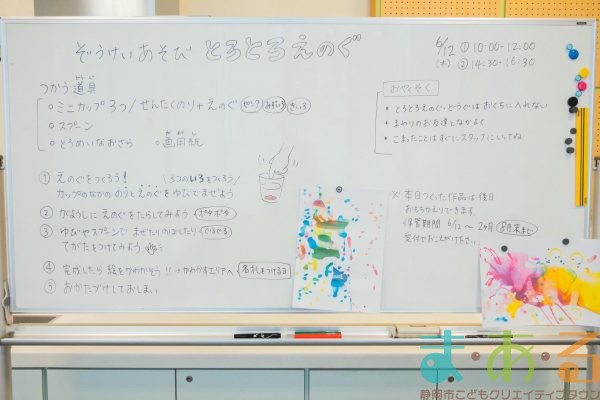 ぞうけいあそび とろとろえのぐ
6/12 ① 10:00-12:00
(木) ② 14:30-16:30
つかう道具
どうぐ
○ミニカップ3つ/せんたくのり+えのぐ ピンク みずいろ きいろ
○スプーン
○とうめいなおさら ○画用紙
がようし
おやくそく
・とろとろえのぐ・どうぐは おくちに入れない
・まわりのお友達となかよく
・こまったことはすぐにスタッフにいってね
① えのぐをつくろう! 3つのいろをつくろう/
カップのなかの のりとえのぐを ゆびでまぜよう
② がようしに えのぐをたらしてみよう ポタポタ
③ ゆびやスプーンで まぜたりのばしたり ぐるぐる
てがたをつけてみよう
④ 完成したら 絵をかわかそう!! →かわかすエリアへ 名札をつける
⑤ おかたづけしておしまい
※ 本日つくった作品は後日
おもちかえりできます。
保管期間 6/12 〜 2ヶ月 8月末まで
受付でおこえがけください。
ま・あ・る
静岡市こどもクリエイティブタウン